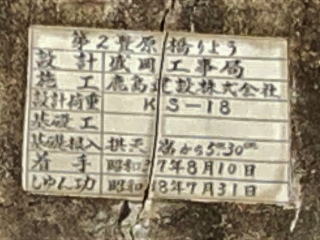 第2豊原橋りょう
設計 盛岡工事局
施工 鹿島建設株式会社
設計荷重 KS-18
基礎工
基礎根入 拱天 から5m30cm
着手 昭和 7年8月10日
しゅん功 昭和 18年7月31日